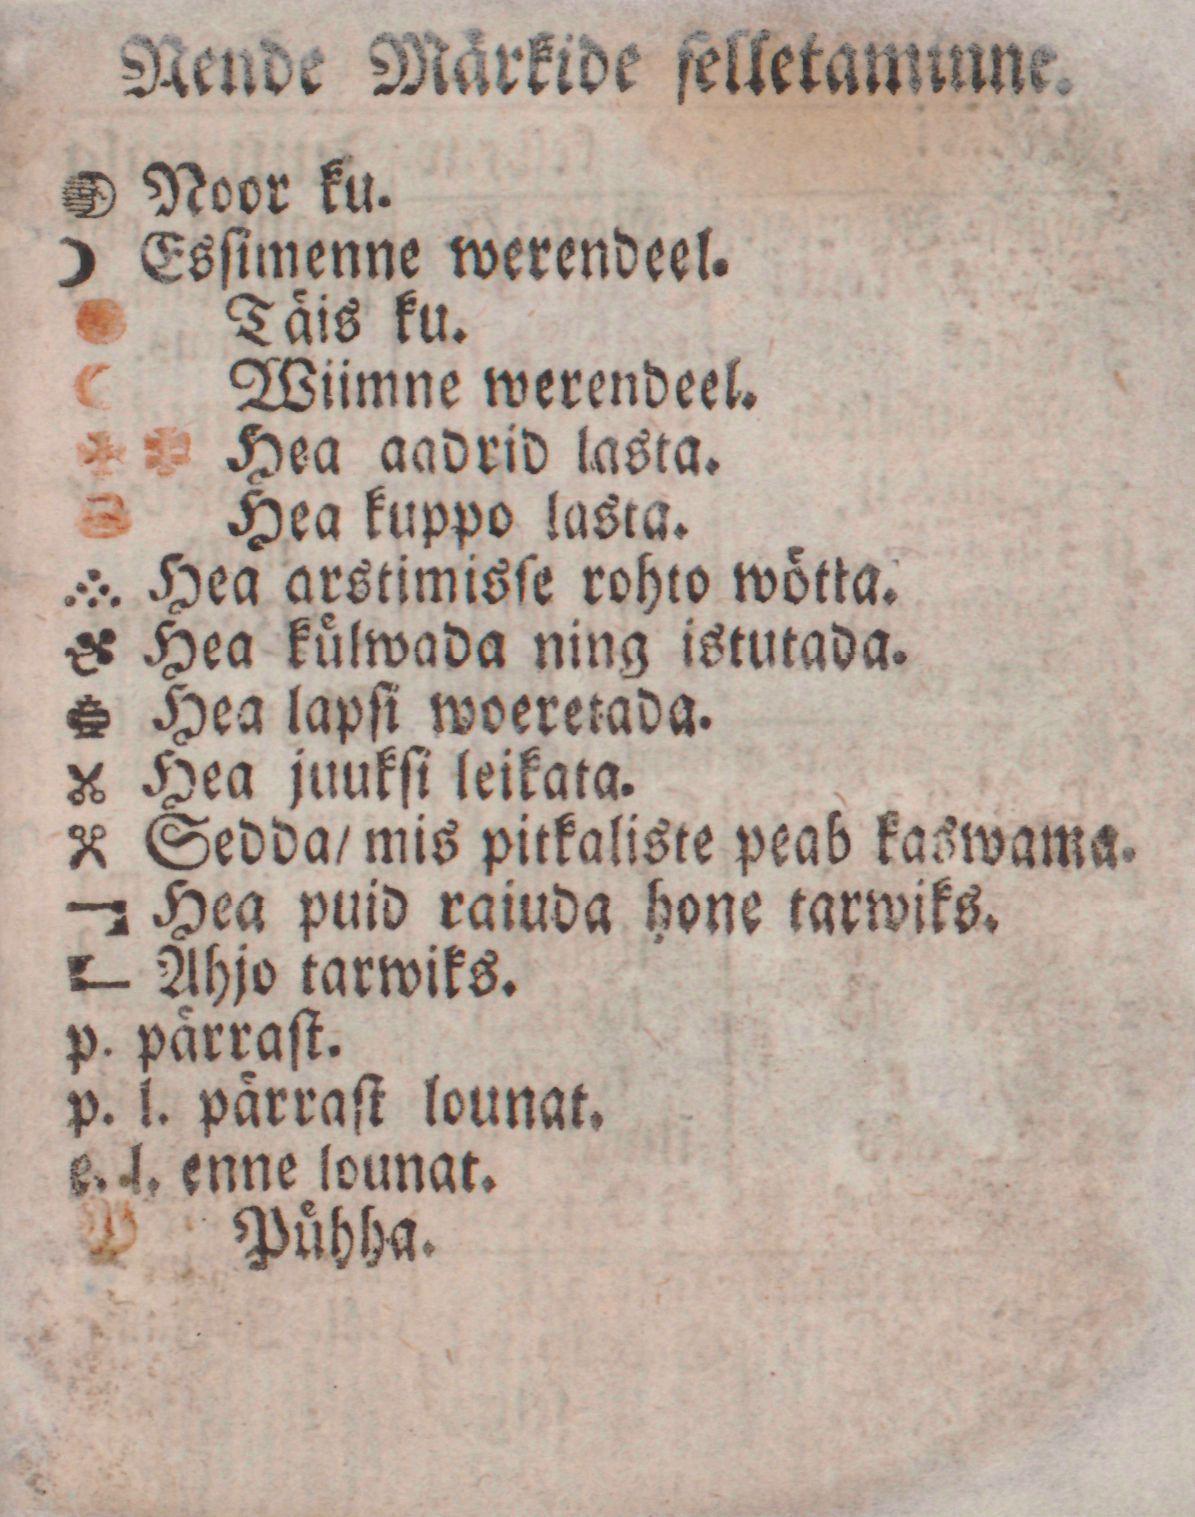 Nende Märkide selletaminne.
Noor ku.
Essimenne werendeel.
Täis ku.
Wiimne werendeel.
Hea aadrid lasta.
Hea kuppo lasta.
Hea arstimisse rohto wötta.
Hea külwada ning istutada.
Hea lapsi woeretada.
Hea juuksi leikata.
Sedda/ mis pitkaliste peab kaswama.
Hea puid raiuda hone tarwiks.
Ahjo tarwiks.
p. pärrast.
p. l. pärrast lounat.
e. l. enne lounat.
P Pühha.